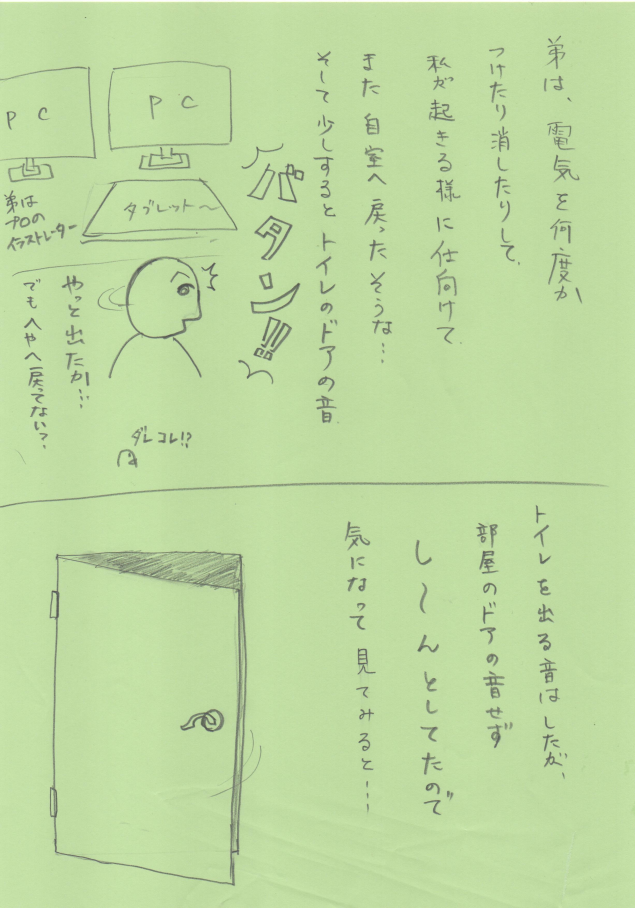 弟は、電気を何度か
つけたり消したりして、
私が起きる様に仕向けて
また自室へ戻ったそうな…
そして少しするとトイレのドアの音
バタン!!!
PC
PC
タブレット〜
弟は
プロの
イラストレーター
やっと出たか…
でもへやへ戻ってない?
ダレコレ!?
トイレを出る音はしたが、
部屋のドアの音せず
し〜んとしてたので
気になって見てみると…